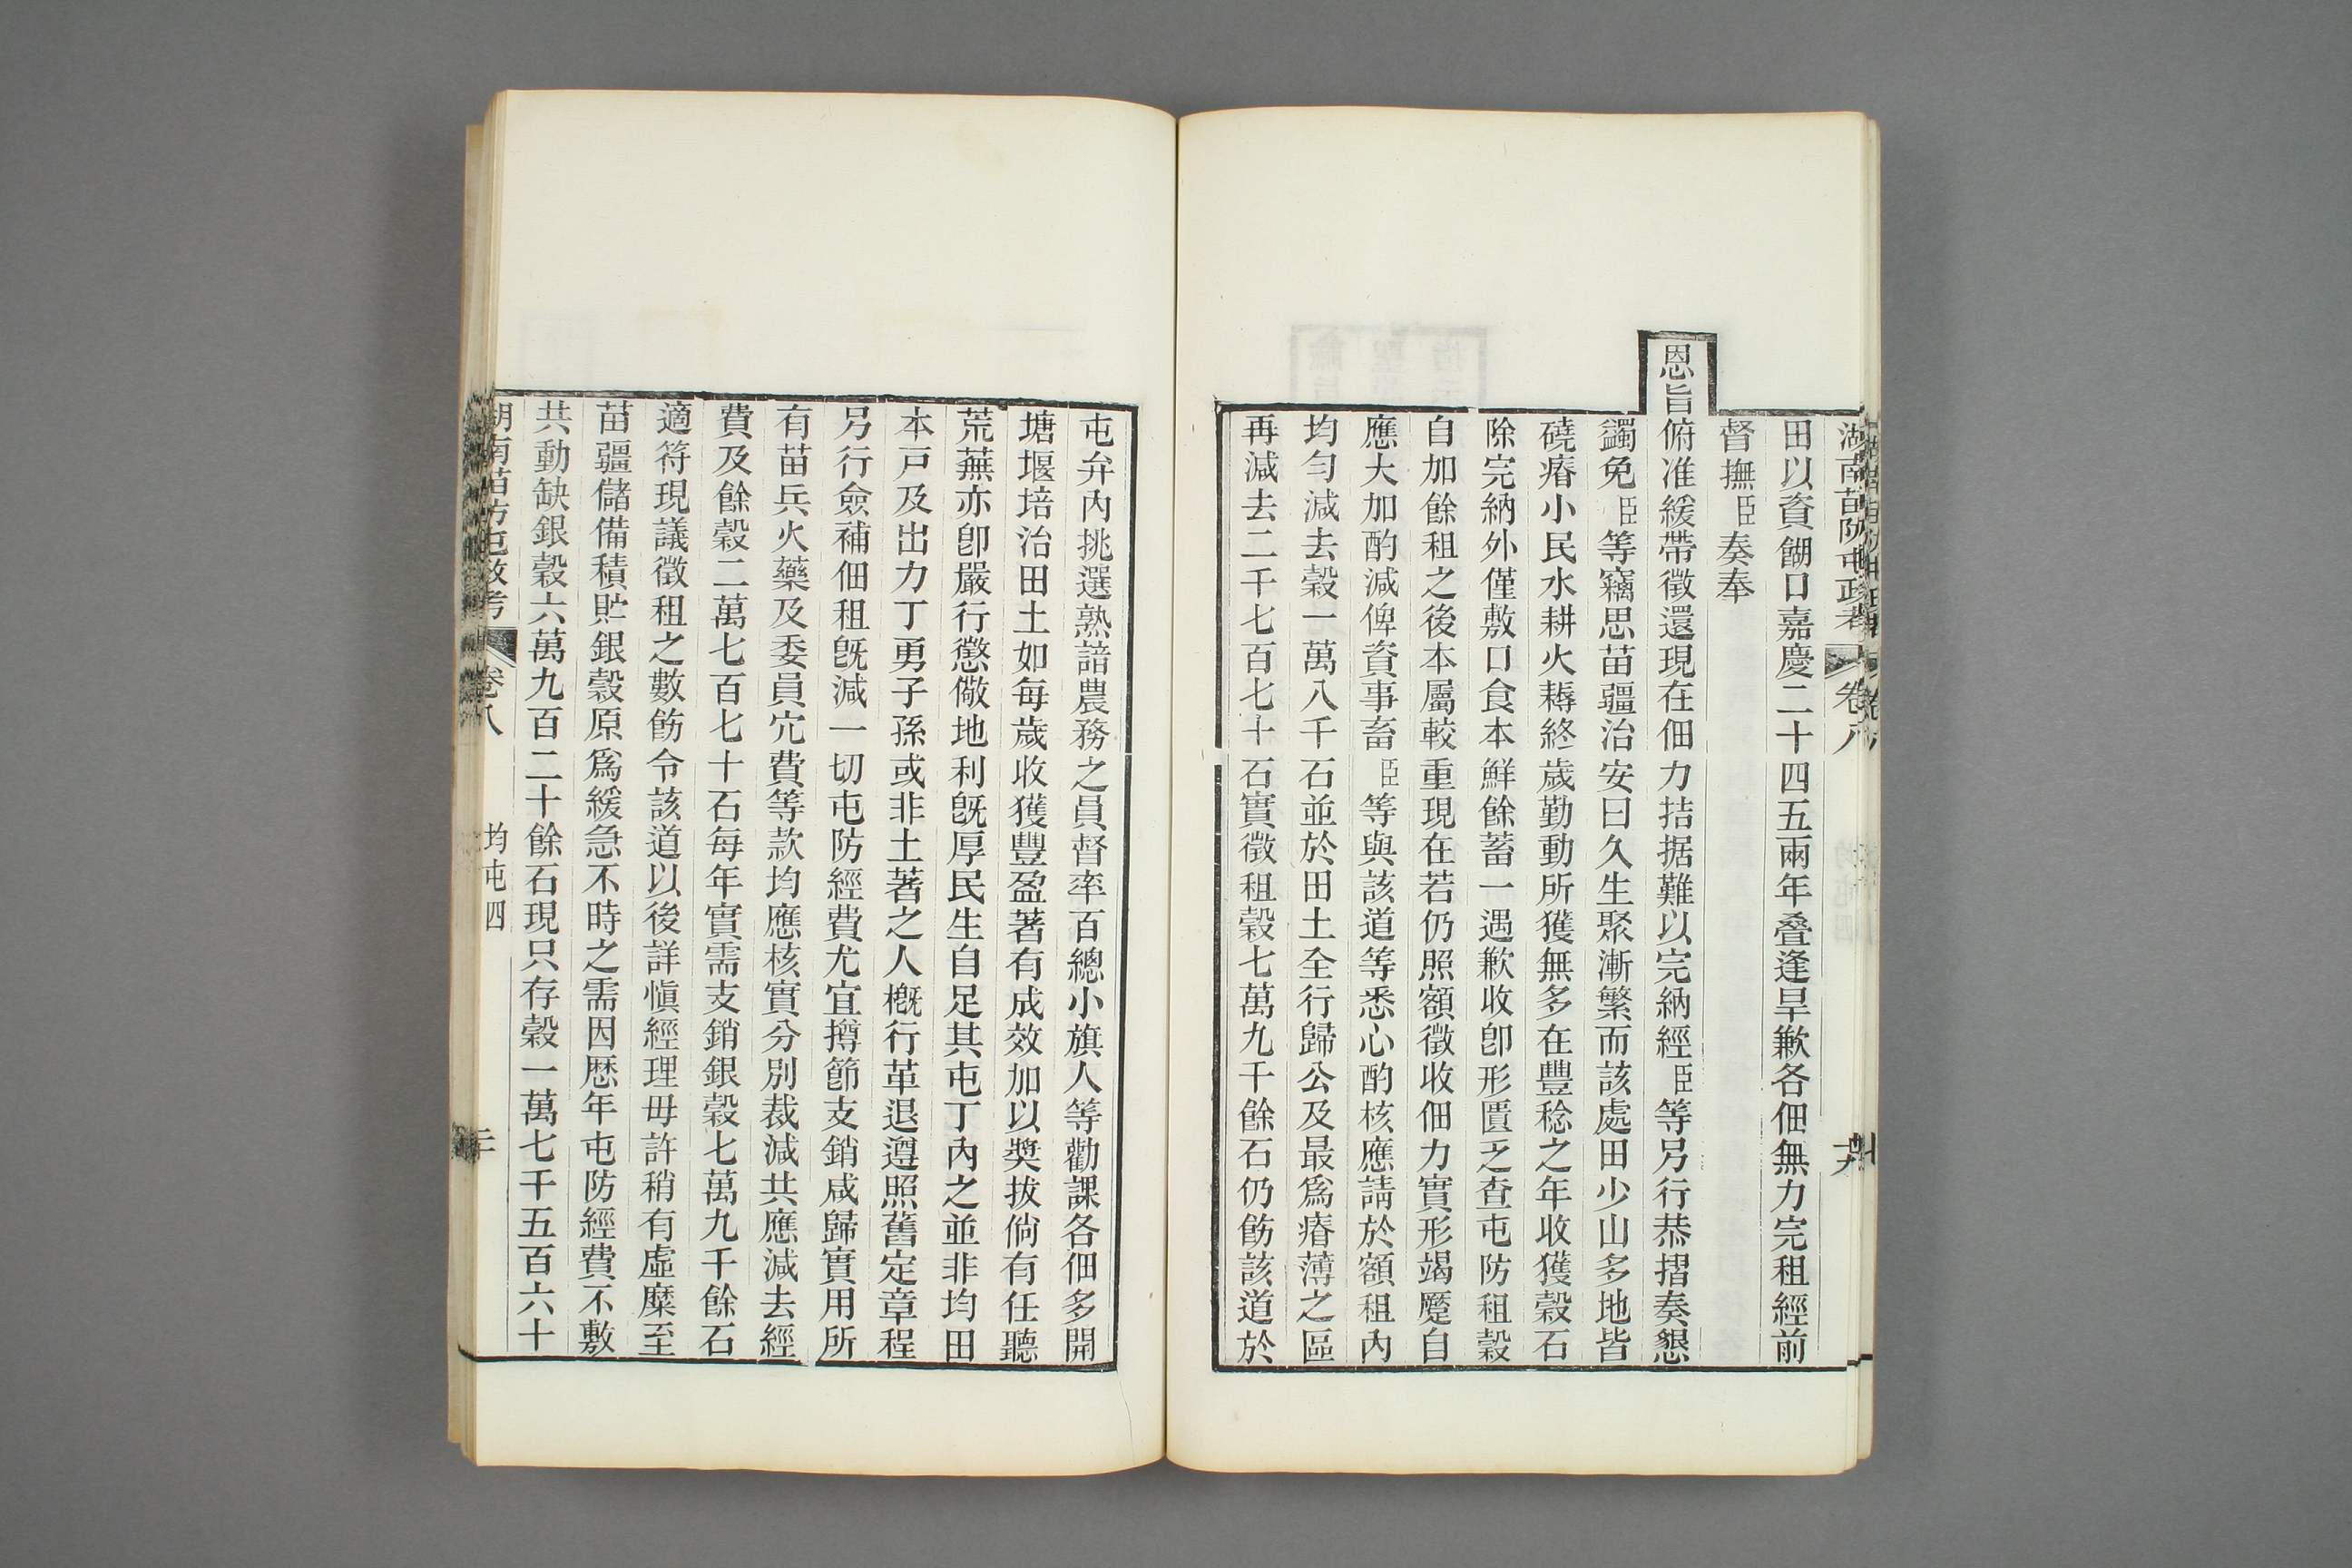 湖南苗防屯政考 卷八
田以資餬口嘉慶二十四五兩年叠逢旱歉各佃無力完租經前
督撫臣奏奉
恩旨俯准緩帶徵還現在佃力拮据難以完納經臣等另行恭摺奏懇
蠲免臣等竊思苗疆治安日久生聚漸繁而該處田少山多地皆
磽瘠小民水耕火耨終歲勤動所獲無多在豐稔之年收獲穀石
除完納外僅敷口食本鮮餘蓄一遇歉收卽形匱乏查屯防租穀
自加餘租之後本屬較重現在若仍照額徵收佃力實形竭蹷自
應大加酌減俾資事畜臣等與該道等悉心酌核應請於額租內
均勻減去穀一萬八千石並於田土全行歸公及最爲瘠薄之區
再減去二千七百七十石實徵租穀七萬九千餘石仍飭該道於
屯弁內挑選熟諳農務之員督率百總小旗人等勸課各佃多開
塘堰培治田土如每歲收獲豐盈著有成效加以奬拔倘有任聽
荒蕪亦卽嚴行懲儆地利旣厚民生自足其屯丁內之並非均田
本戸及出力丁勇子孫或非土著之人槪行革退遵照舊定章程
另行僉補佃租旣減一切屯防經費尤宜撙節支銷咸歸實用所
有苗兵火藥及委員宂費等款均應核實分別裁減共應減去經
費及餘穀二萬七百七十石每年實需支銷銀穀七萬九千餘石
適符現議徵租之數飭令該道以後詳愼經理毋許稍有虛糜至
苗疆儲備積貯銀穀原爲緩急不時之需因厯年屯防經費不敷
共動缺銀穀六萬九百二十餘石現只存穀一萬七千五百六十
湖南苗防屯政考 卷八 均屯四